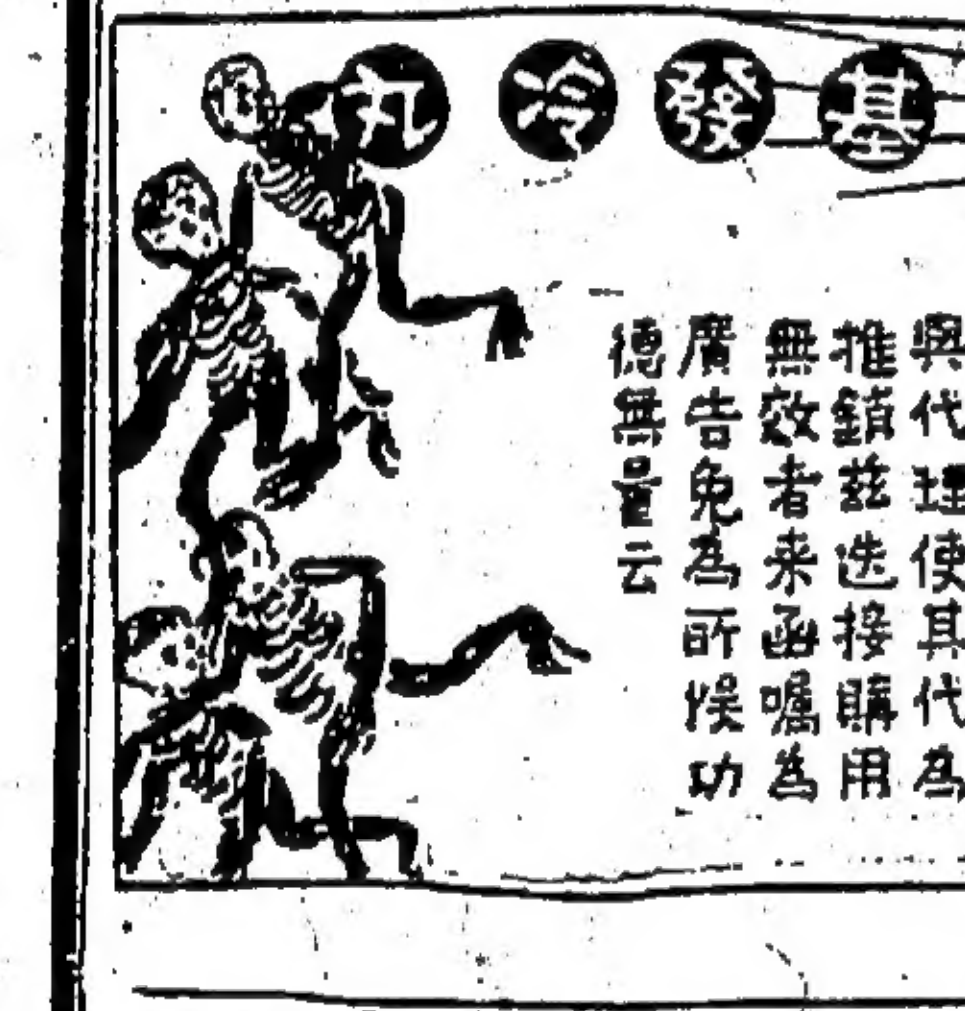 基發冷丸
與代理使其代為
推銷茲迭接購用
無效者来函囑為
廣告免為所悮功
德無量云